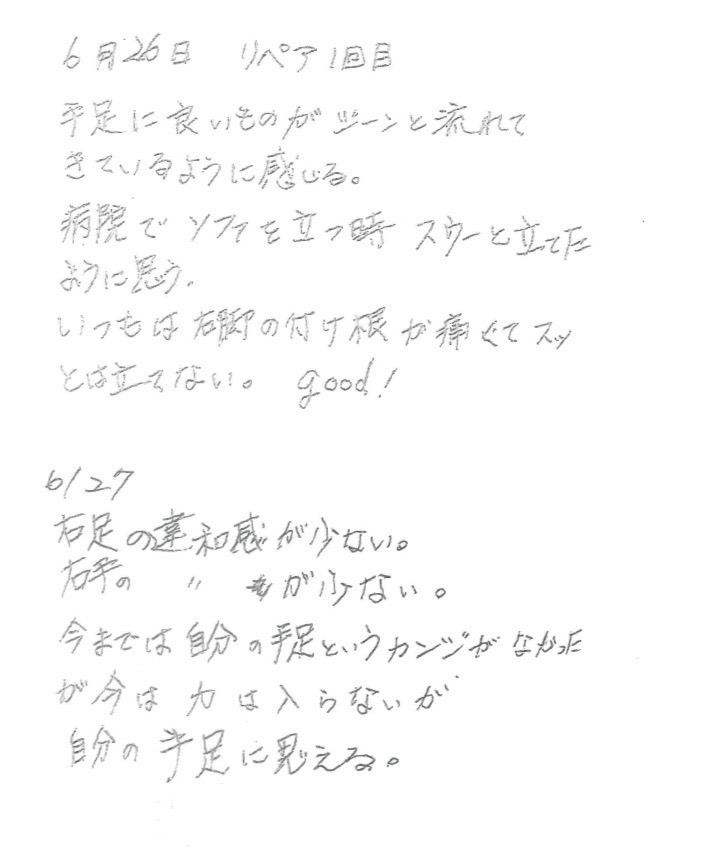 6月26日 リペア1回目
手足に良いものがジーンと流れて
きているように感じる。
病院でソファを立つ時 スウーと立てた
ように思う。
いつもは右脚の付け根が痛くてスッ
とは立てない。 good!
6/27
右足の違和感が少ない。
右手の 〃 が少ない。
今までは自分の手足というカンジがなかった
が今は力は入らないが
自分の手足に思える。